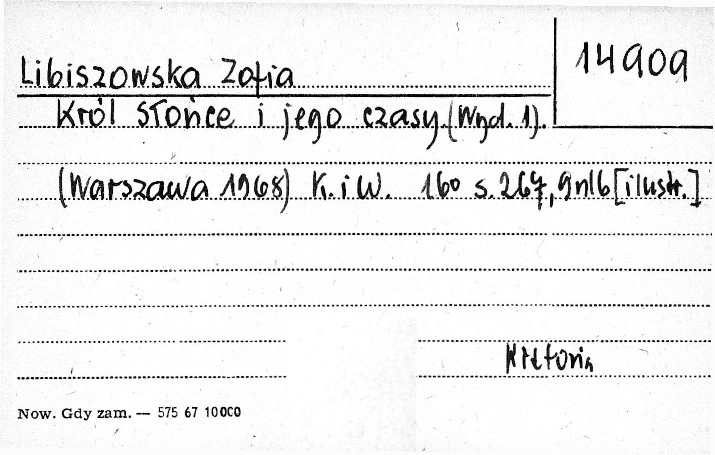 14909
Libiszowska Zofia
Król Słońce i jego czasy. (Wyd. 1).
(Warszawa 1968) K. i W. 16o s. 267, 9nlb [ilustr.]
Now. Gdy zam. — 575 67 10000